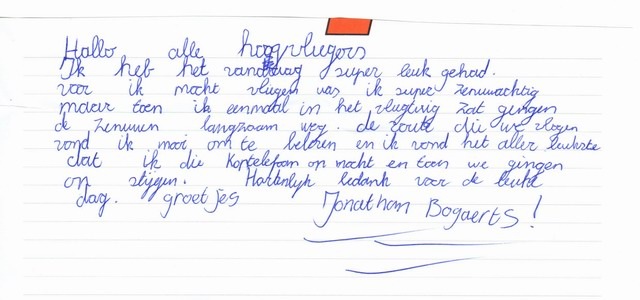 Hallo alle hoogvliegers
Ik heb het vandaag super leuk gehad.
voor ik mocht vliegen was ik super zenuwachtig
maar toen ik eenmaal in het vligtuig zat gingen
de zenuwen langzaam weg. de route die we vlogen
vond ik mooi om te beleven en ik vond het aller leukste
dat ik die Koptelefoon op macht en toen we gingen
op stijgen. Hartenlijk bedankt voor de leuke
dag. groetjes Jonathan Bogaerts!